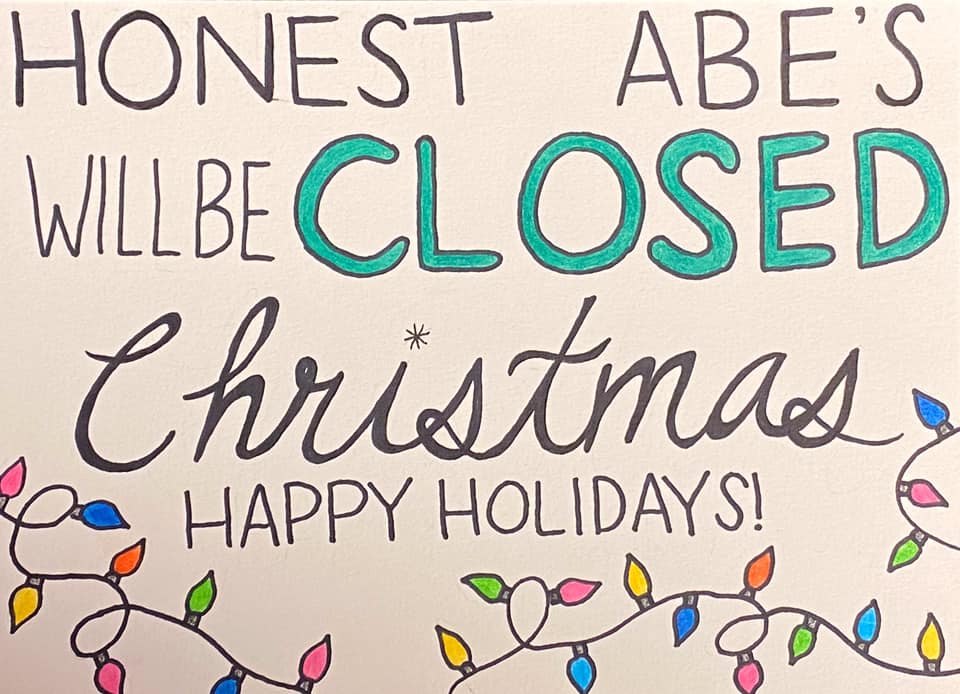 HONEST ABE'S
WILL BE CLOSED
Christmas
HAPPY HOLIDAYS!